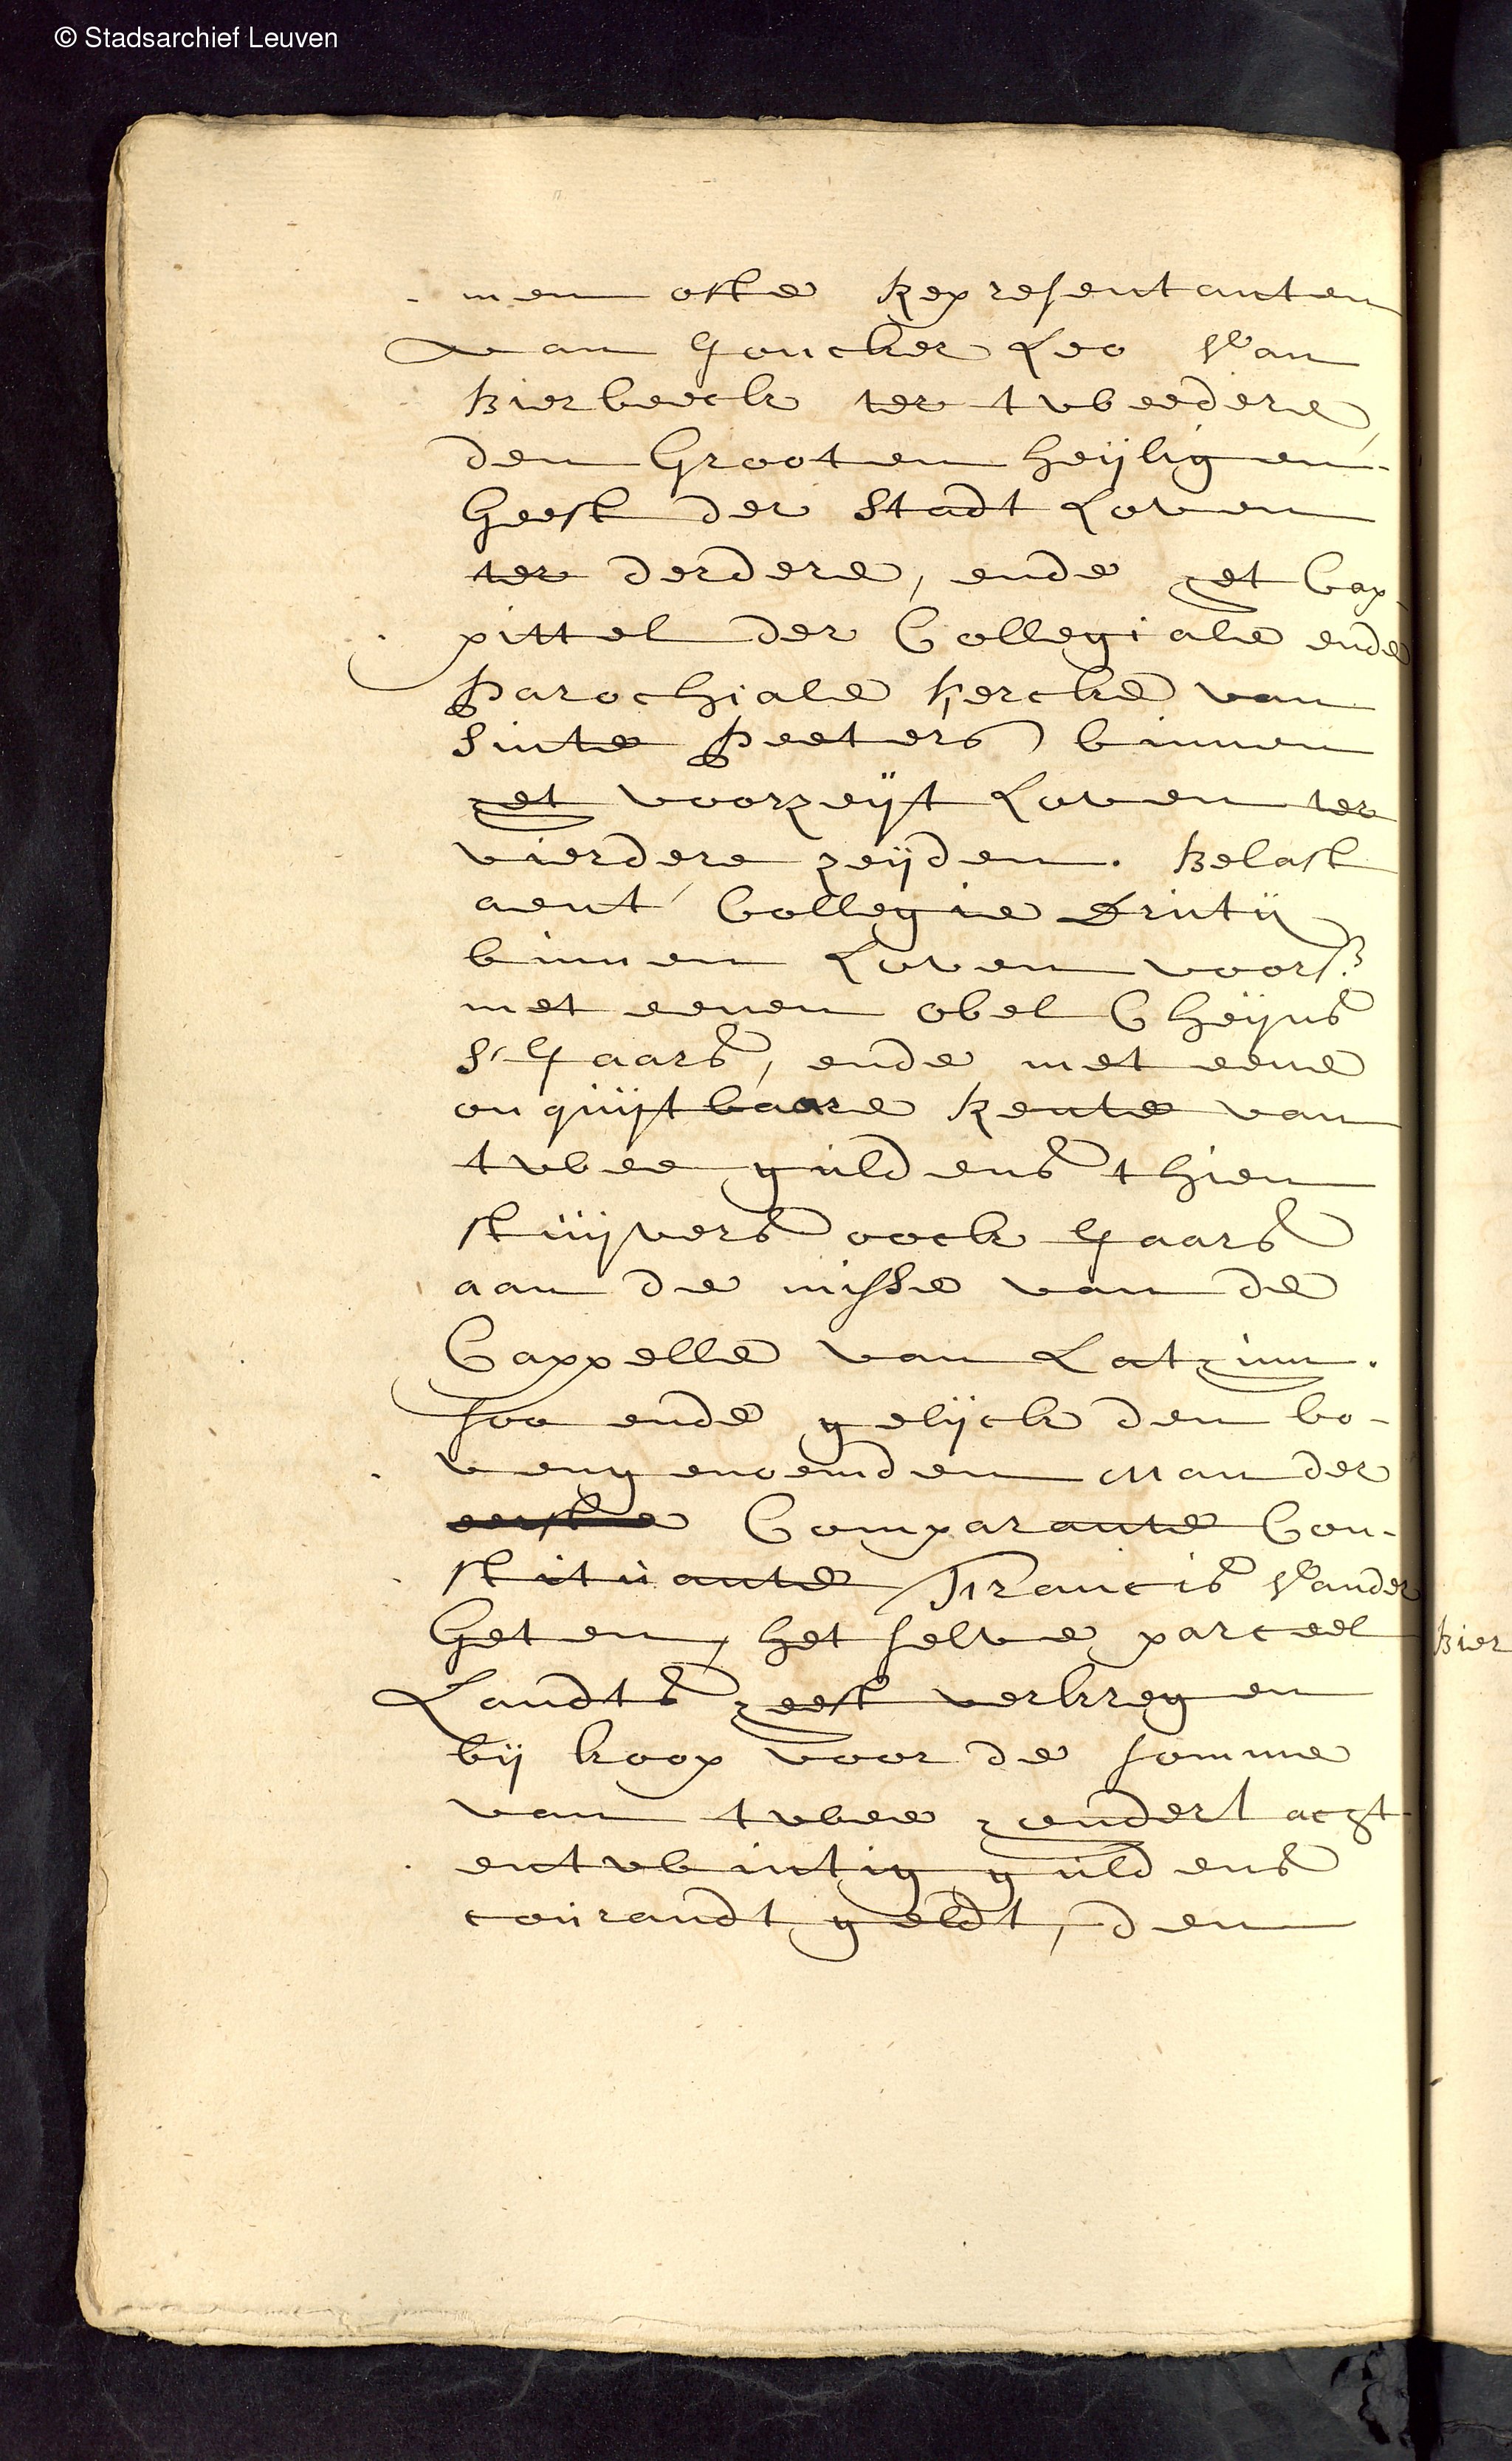 © Stadsarchief Leuven
men ofte Representanten
van Joncker Leo Van
Bierbeeck ter tweedere,
den Grooten heijligen
Geest der Stadt Loven
ter derdere, ende het Cap-
pittel der Collegiale ende
Parochiale kercke van
Sinte Peeters binnen
het voorzeijt Loven ter
vierdere zeijden. Belast
aent Collegie Drutij
binnen Loven voors.
met eenen obel Cheijns
s'Jaars, ende met eene
onquijtbaare Rente van
twee guldens thien
stuijvers oock Jaars
aan de misse van de
Cappelle van
soo ende gelijck den bo-
vengenoemden Man der
eerste Comparante Con-
stituante Francis Vander
Geten, het selve parceel
Landts heeft verkregen
bij koop voor de somme
van twee hondert acht
entwintig guldens
courandt geldt, den
Bier